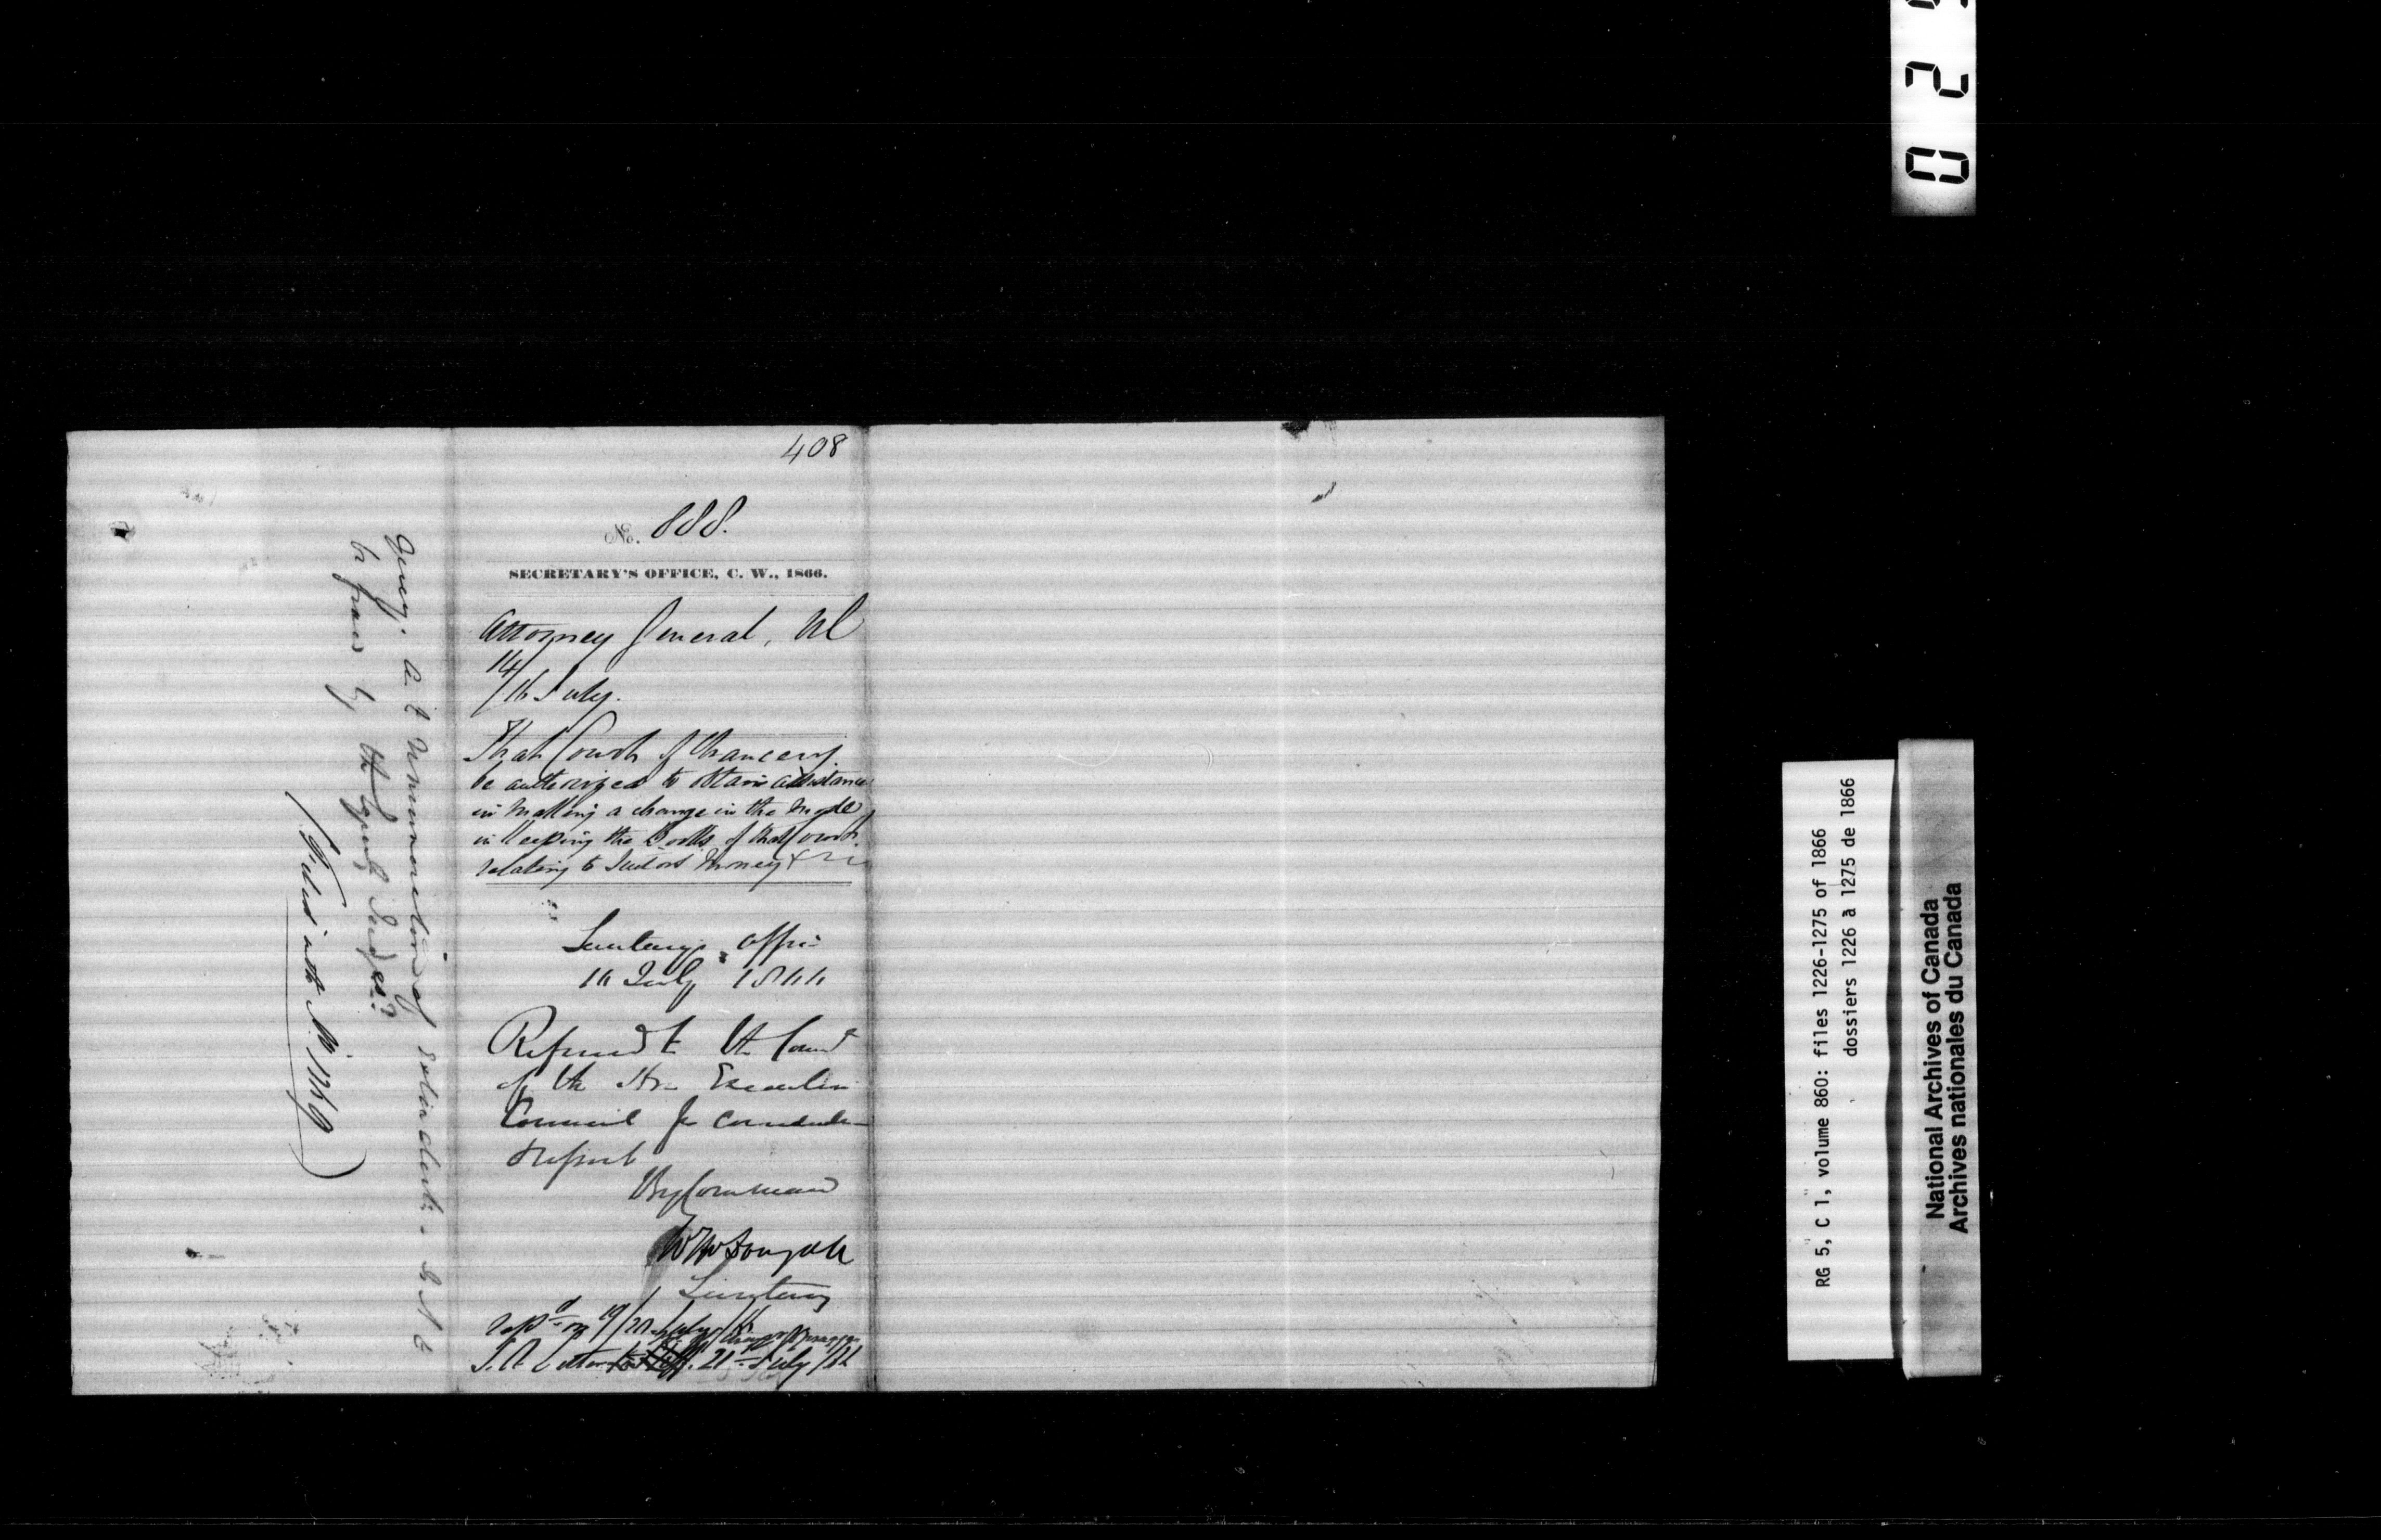 408
No. 888.
SECRETARY'S OFFICE, C. W., 1866.
Attorney General, UC
14/16 July.
That Court of Chancery
be authorized to obtain assistance
in making a change in the mode
in keeping the Books of that Court
relating to Suitors Money &c
Secretary's Office
16 July 1866
Referred to the Court
of the Hon Executive
Council for consideration
& report
By Command
W McDougall
Secretary
Rep'd on 19/20 July/66
T. A. Letter 21st July/66
Query. as to remuneration of
be fixed by the Judges?
(Filed with No. 1269)
RG 5, C 1, volume 860: files 1226-1275 of 1866
dossiers 1226 à 1275 de 1866
National Archives of Canada
Archives nationales du Canada
0 2